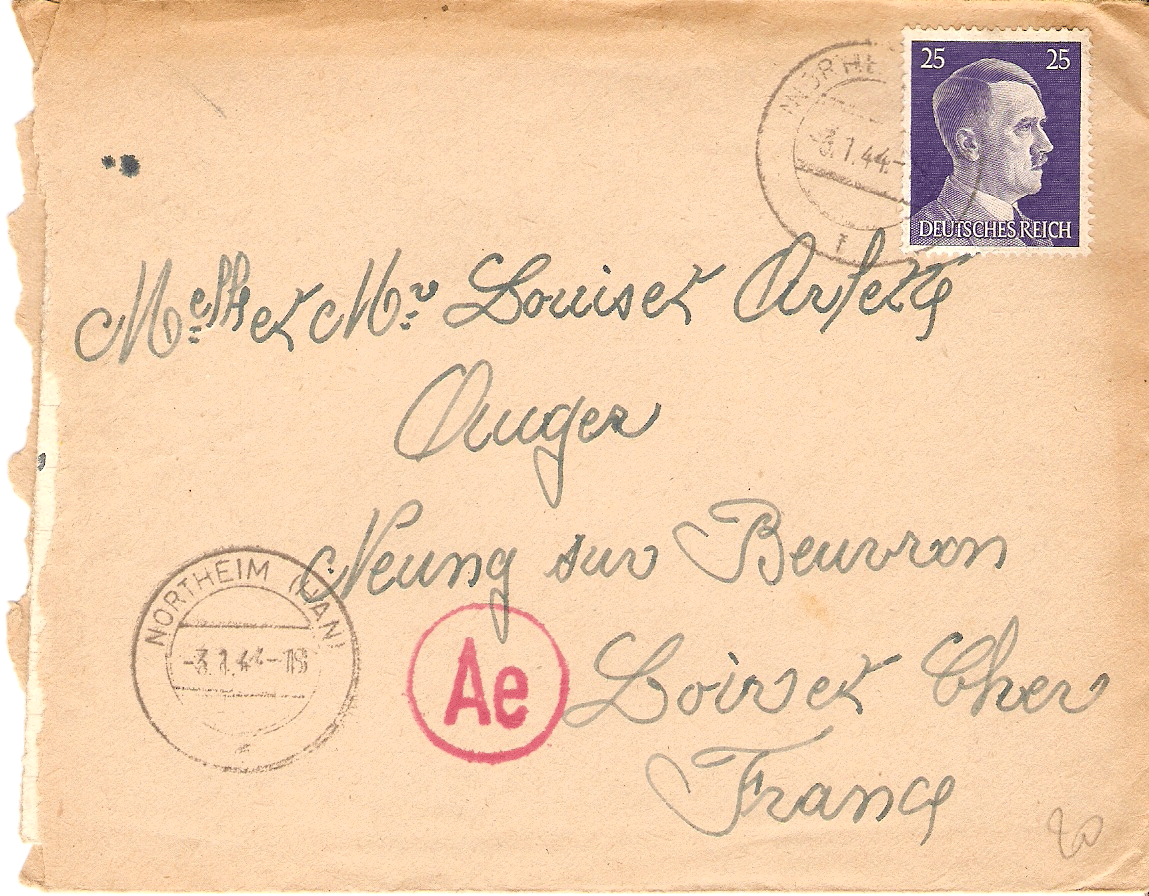 25 25
DEUTSCHES REICH
-3.1.44-
Melle et Mr Louis et Arlette
Auger
Neung sur Beuvron
Loir et Cher
France
NORTHEIM (HAN)
-3.1.44-18
Ae